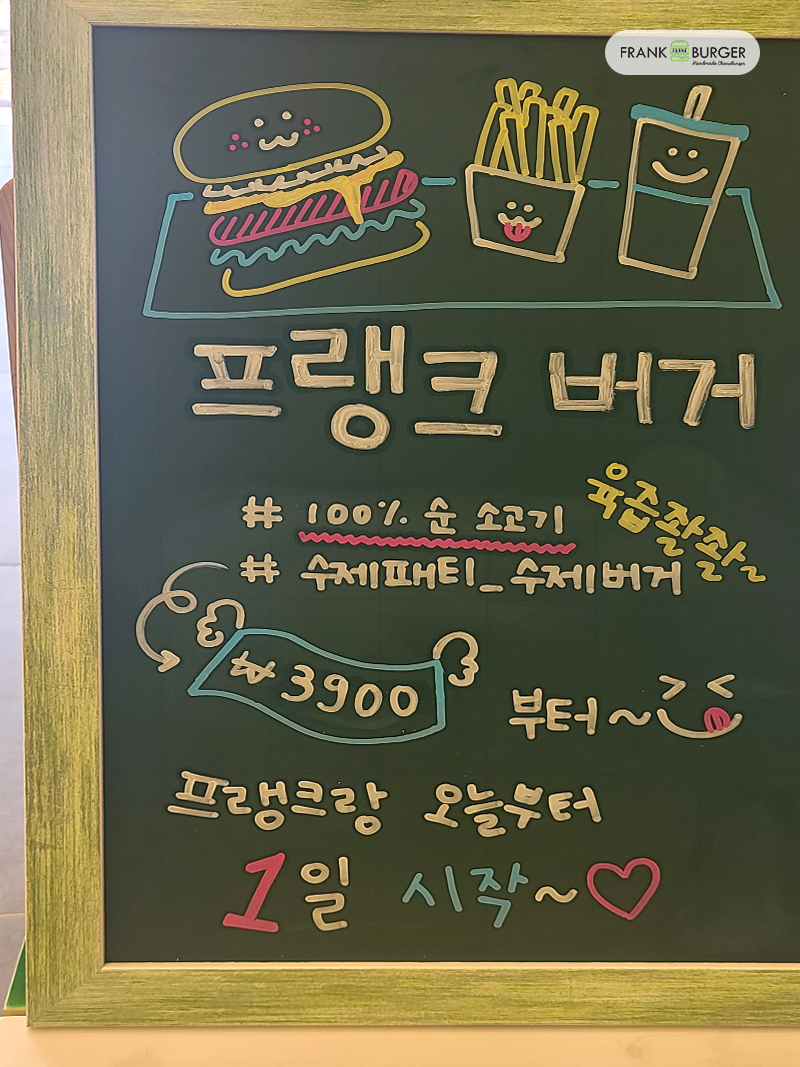 FRANK FRANK BURGER
Handmade Cheeseburger
프랭크 버거
# 100% 순 소고기
육즙좔좔~
# 수제패티_수제버거
₩3900
부터~
프랭크랑 오늘부터
1일 시작~♡